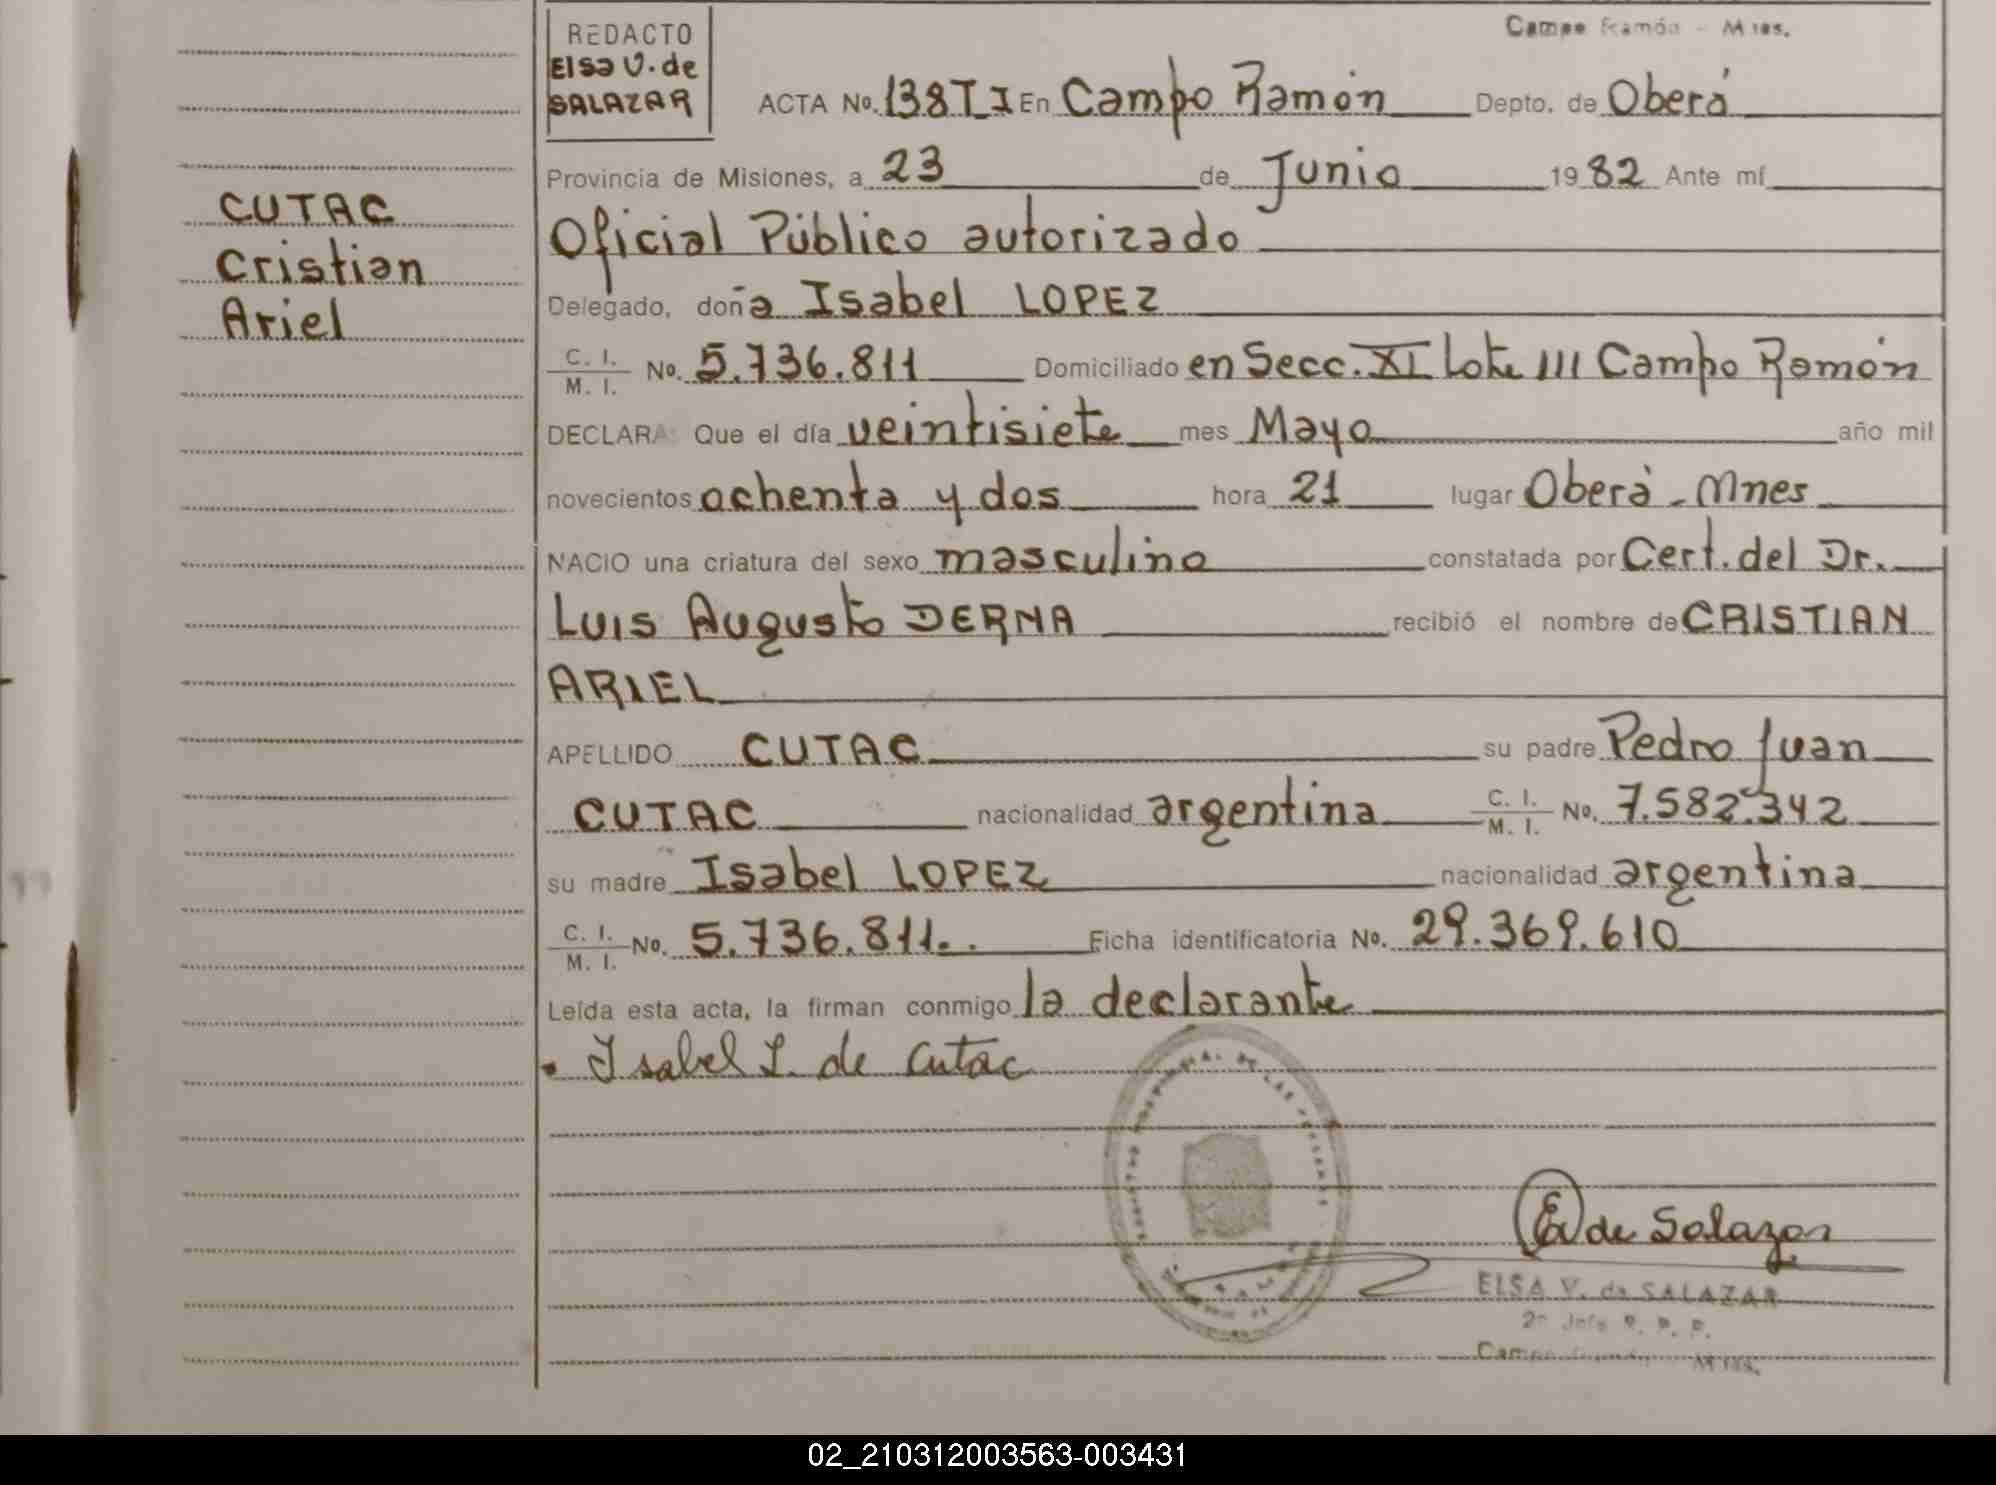 Campo Ramón - Mnes.
REDACTO
Elsa V. de
SALAZAR
ACTA No. 138 T I En Campo Ramón Depto. de Oberá
Provincia de Misiones, a 23 de Junio 1982 Ante mí
CUTAC
Cristian
Ariel
Oficial Público autorizado
Delegado, doña Isabel LOPEZ
C. I. / M. I. No. 5.736.811 Domiciliado en Secc. XI Lote 111 Campo Ramón
DECLARA: Que el día veintisiete mes Mayo año mil
novecientos ochenta y dos hora 21 lugar Oberá - Mnes
NACIO una criatura del sexo masculino constatada por Cert. del Dr.
Luis Augusto DERNA recibió el nombre de CRISTIAN
ARIEL
APELLIDO CUTAC su padre Pedro Juan
CUTAC nacionalidad argentina C. I. / M. I. No. 7.582.342
su madre Isabel LOPEZ nacionalidad argentina
C. I. / M. I. No. 5.736.811. Ficha identificatoria No. 29.369.610
Leída esta acta, la firman conmigo la declarante
Isabel L. de Cutac
EV de Salazar
ELSA V. de SALAZAR
2º Jefe R. P. P.
Campo Ramón Mnes.
02_210312003563-003431